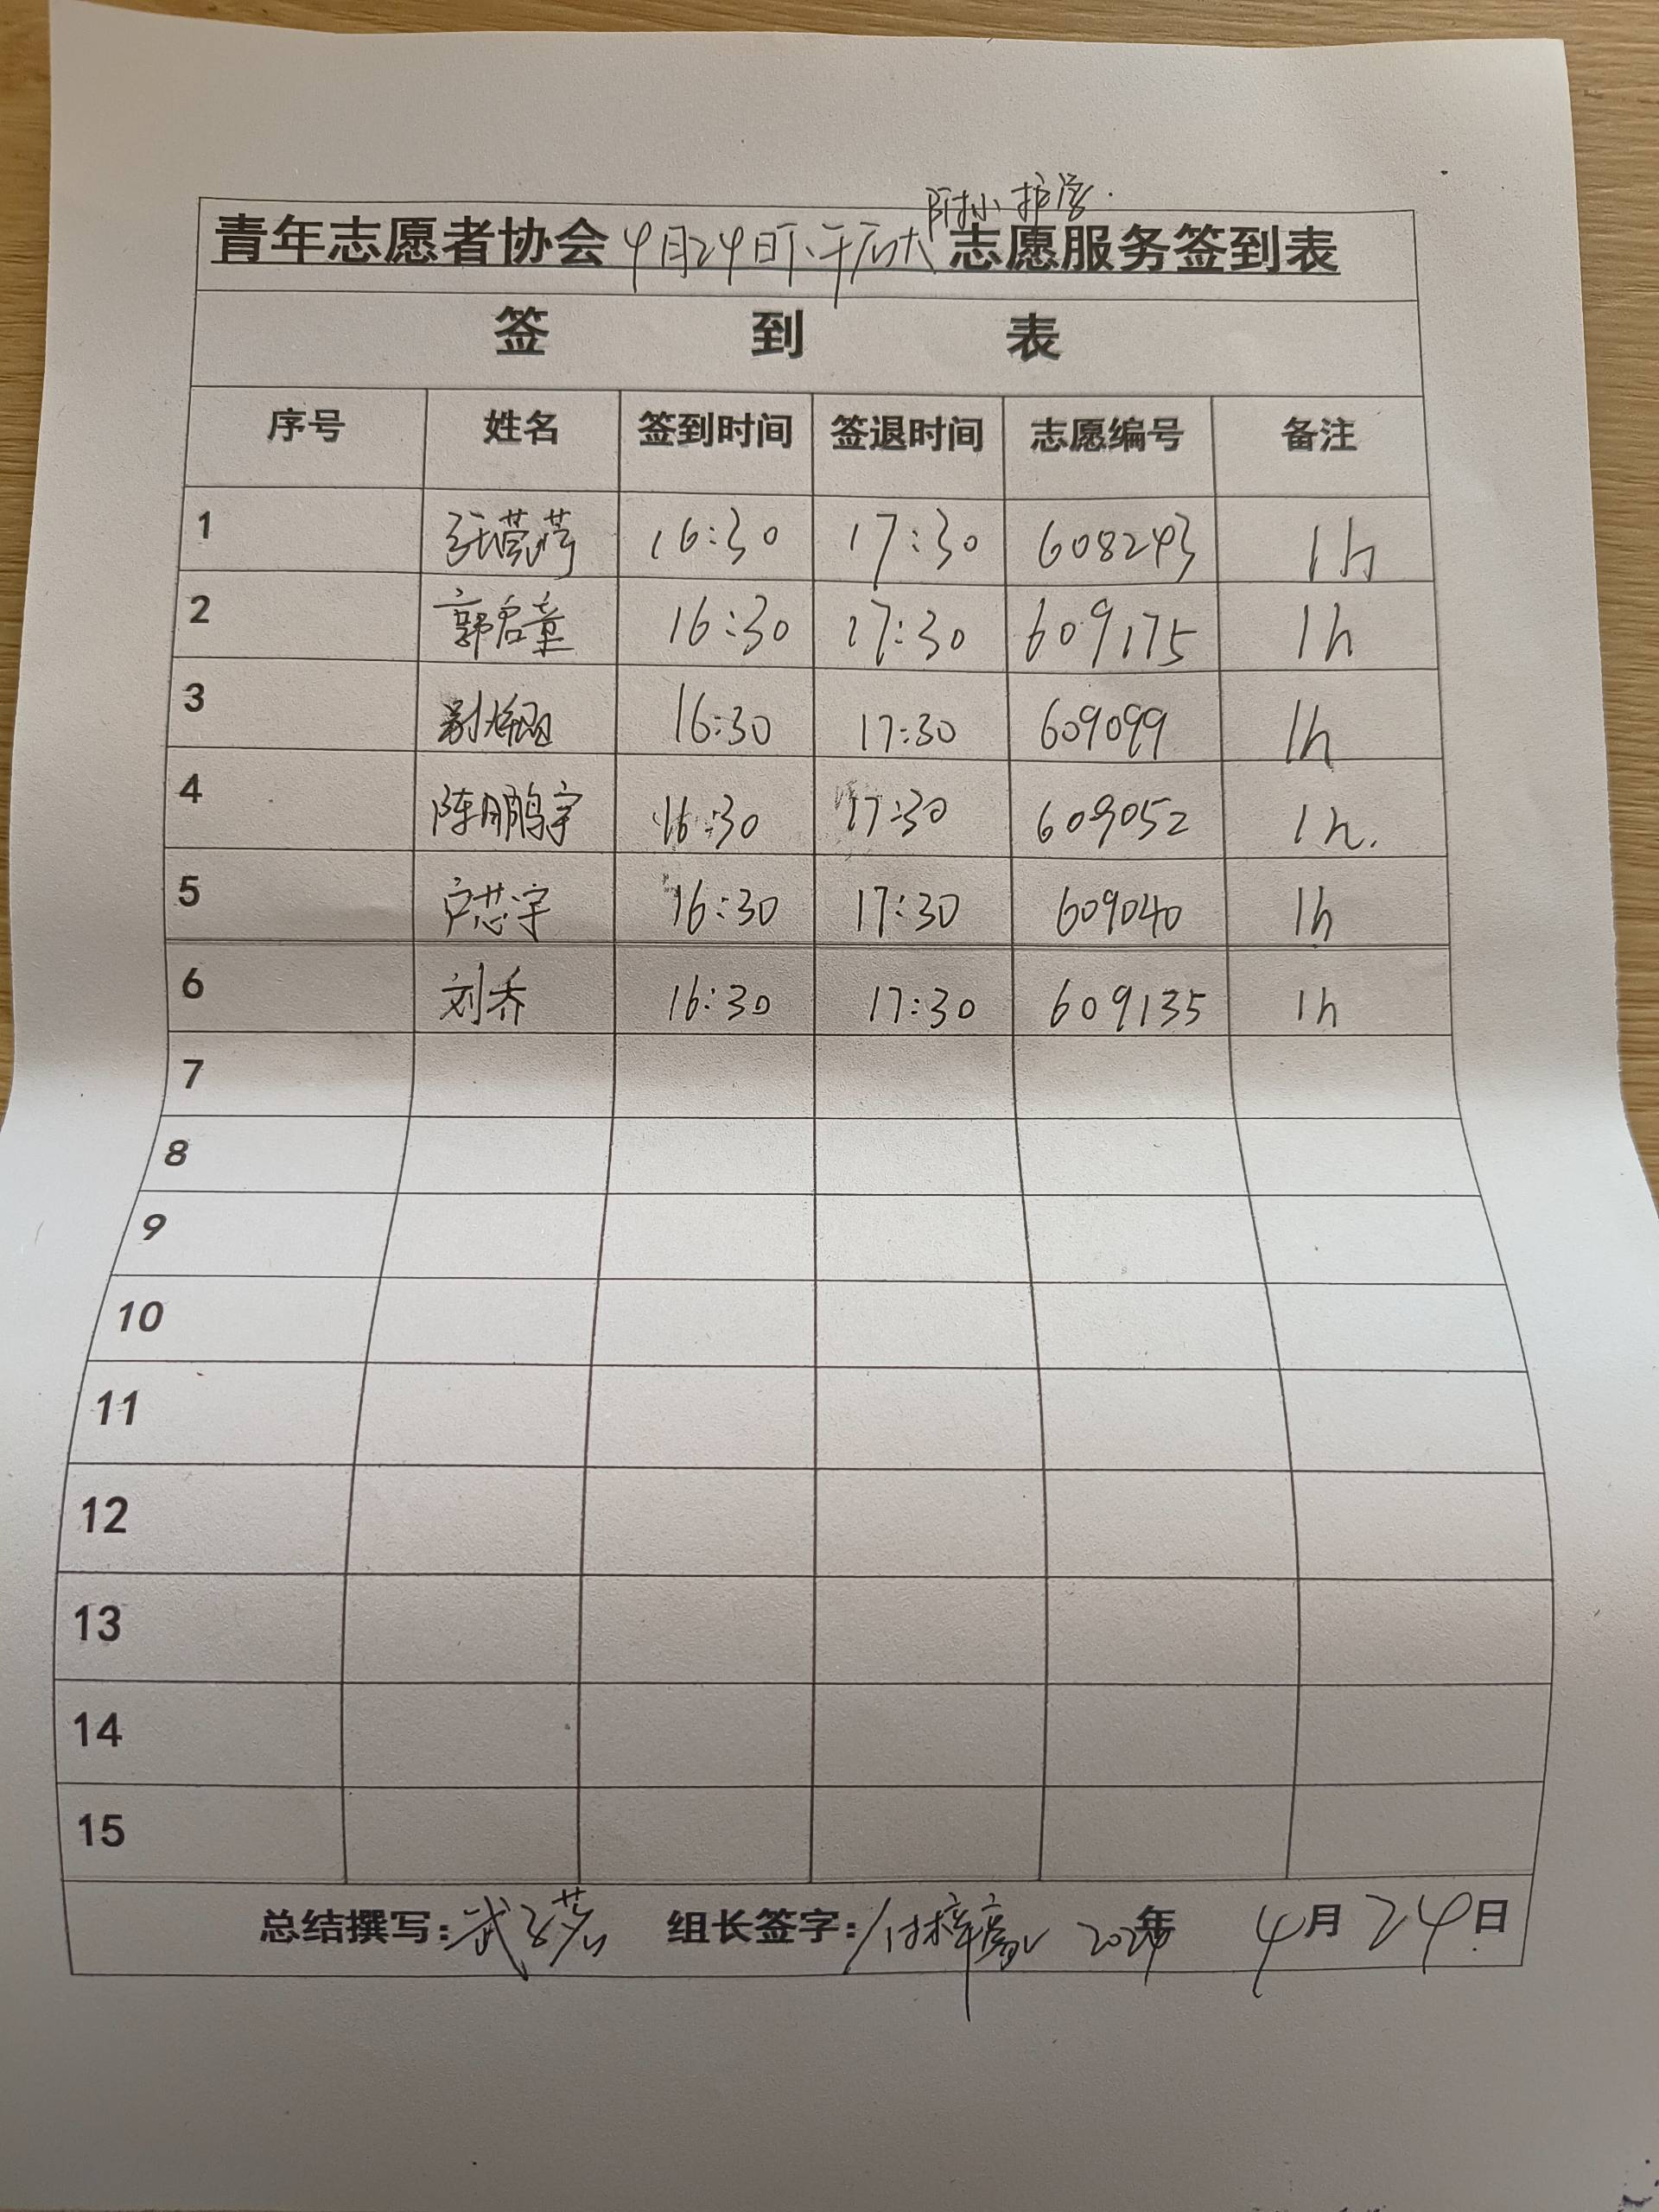 附小护学
青年志愿者协会4月24日下午应大志愿服务签到表
签 到 表
序号 姓名 签到时间 签退时间 志愿编号 备注
1 16:30 17:30 608243 1h
2 郭启童 16:30 17:30 609175 1h
3 16:30 17:30 609099 1h
4 陈鹏宇 16:30 17:30 609052 1h.
5 户芯宇 16:30 17:30 609040 1h
6 刘乔 16:30 17:30 609135 1h
7
8
9
10
11
12
13
14
15
总结撰写: 组长签字: 2024年 4月24日